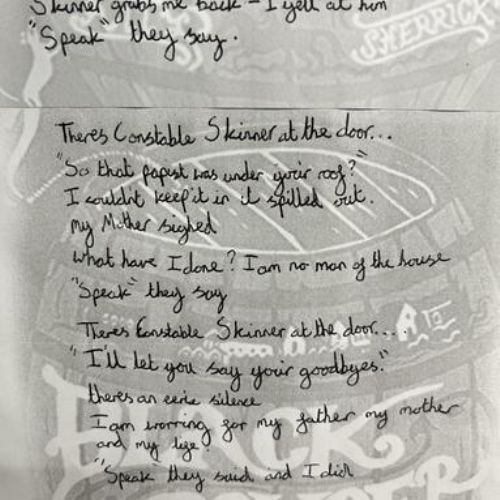 Skinner grabs me back - I yell at him
"Speak" they say.
SHERRICK
Theres Constable Skinner at the door...
"So that papist was under your roof?"
I couldnt keep it in it spilled out.
my Mother sighed
what have I done? I am no man of the house
"Speak" they say
Theres Constable Skinner at the door....
"I'll let you say your goodbyes."
theres an eerie silence
I am worring for my father my mother
and my life.
"Speak" they said and I did
BLACK